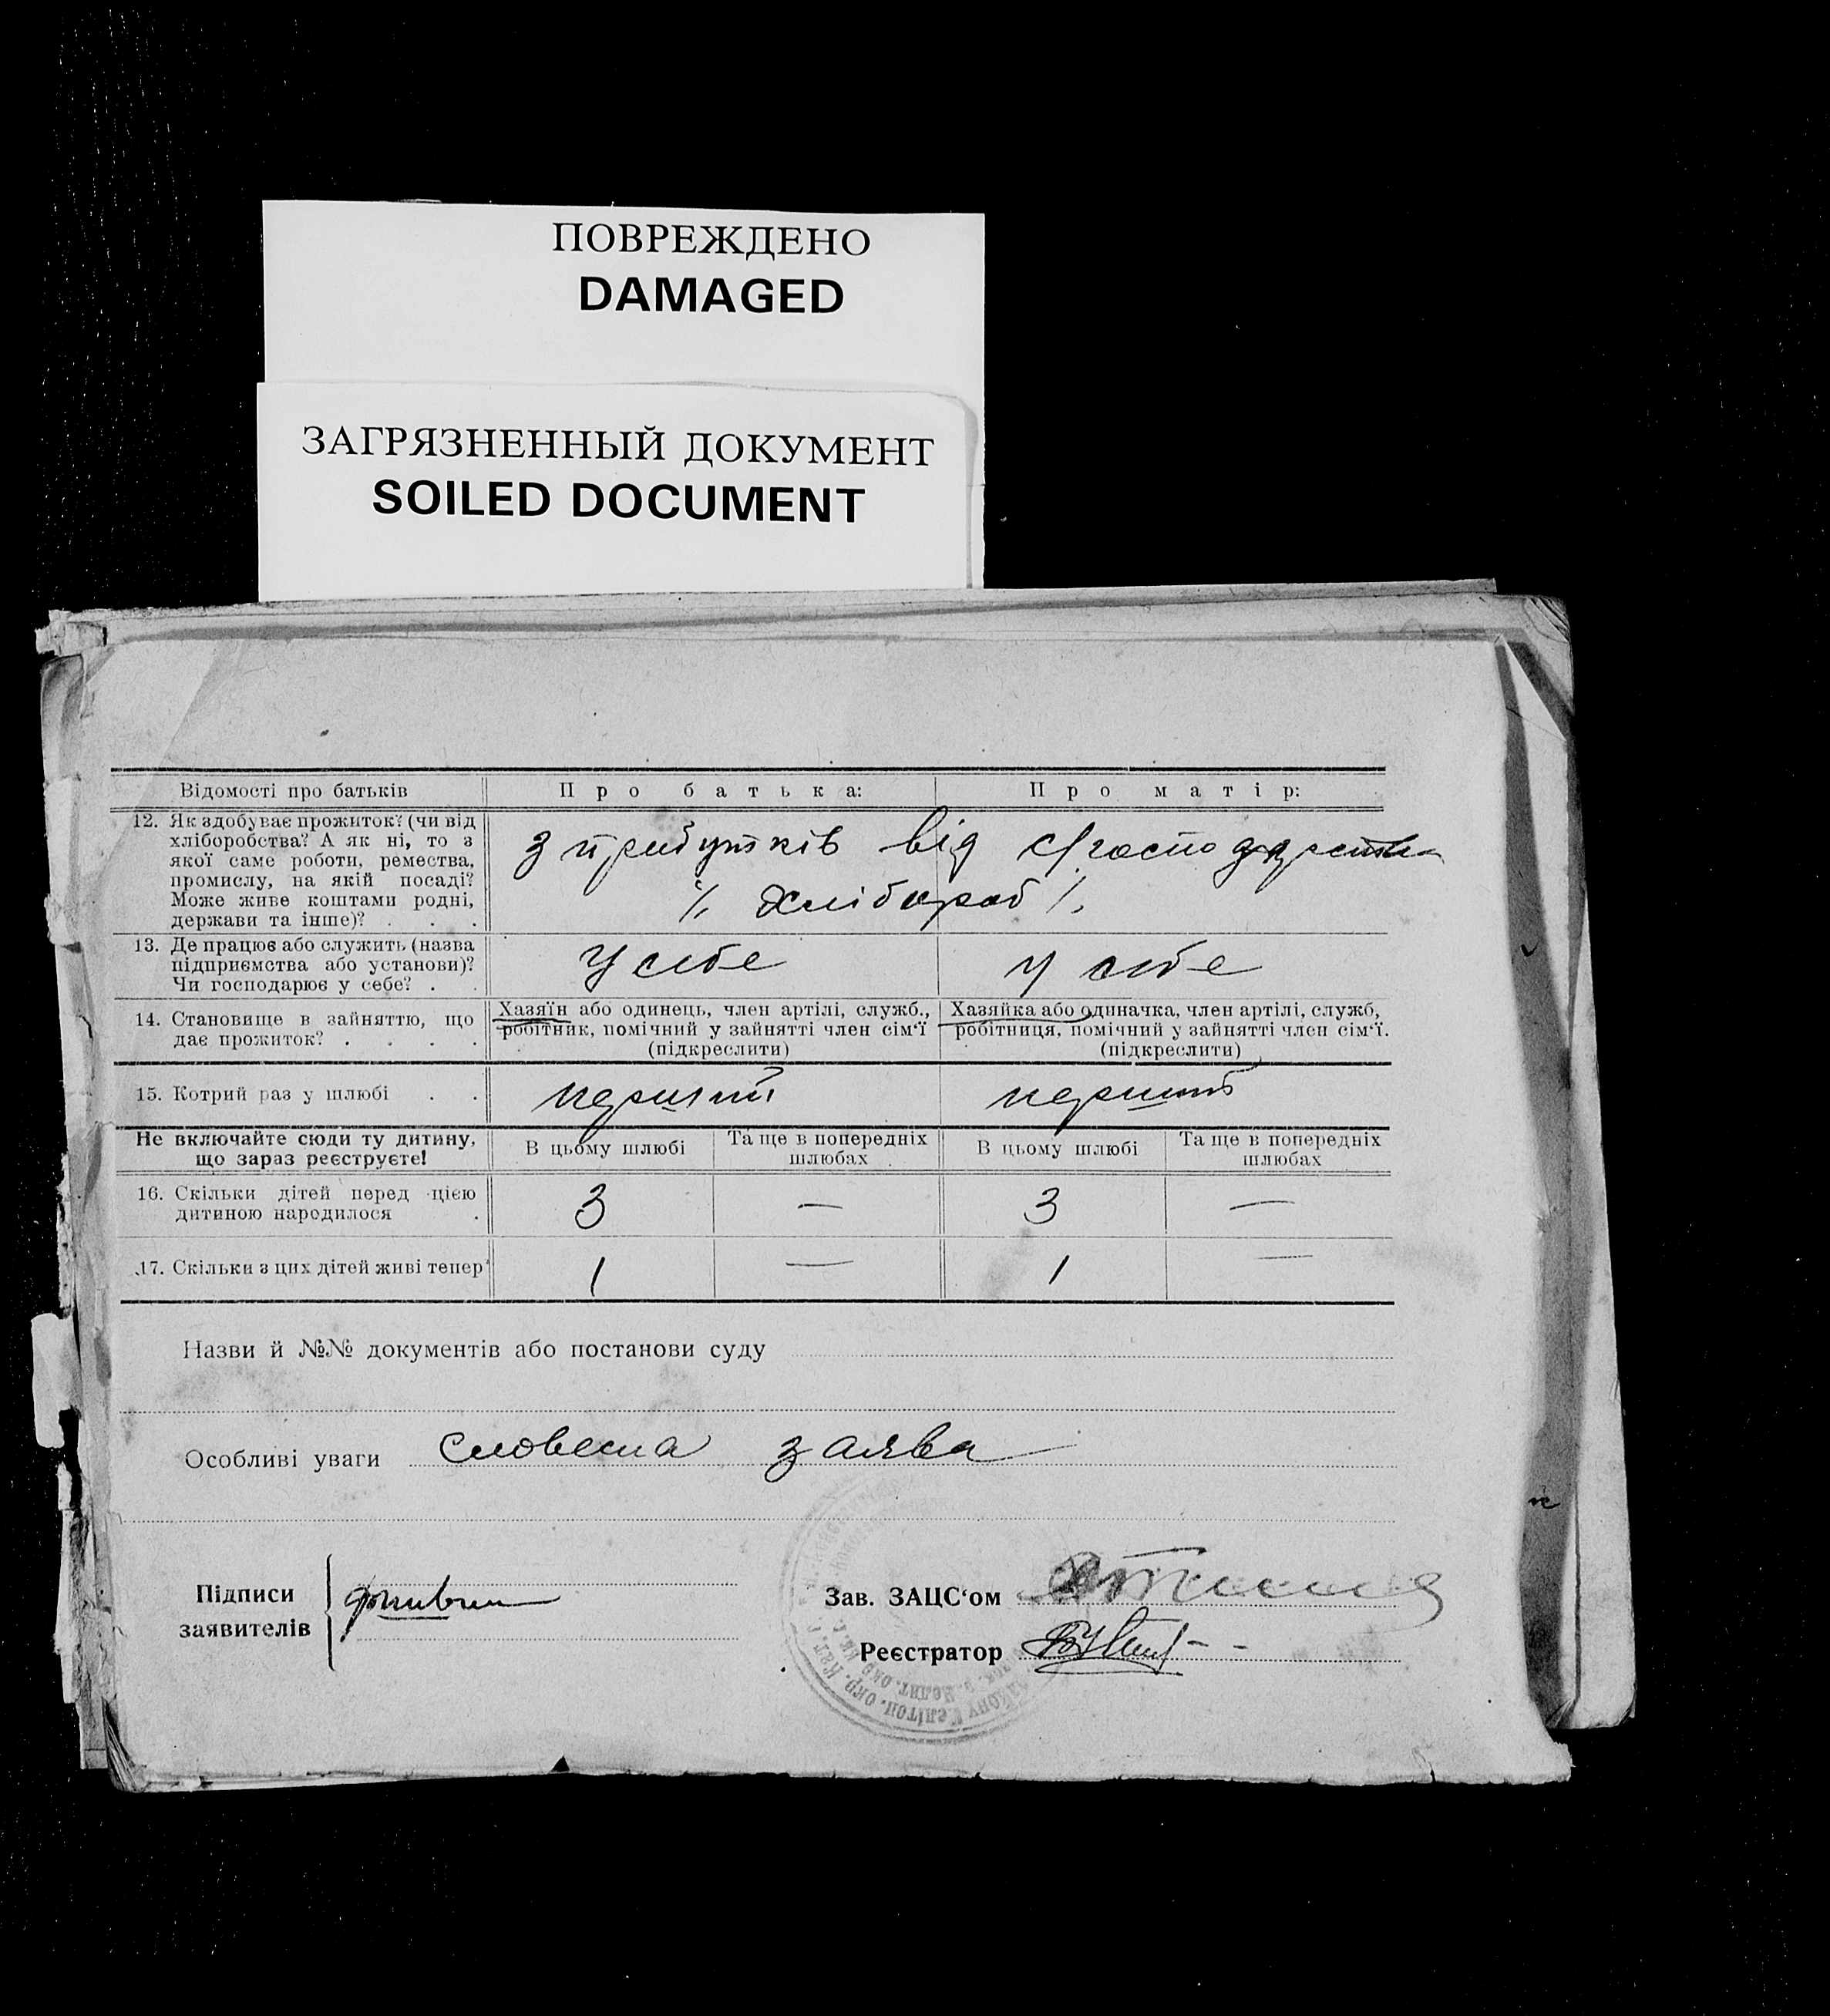 ПОВРЕЖДЕНО
DAMAGED
ЗАГРЯЗНЕННЫЙ ДОКУМЕНТ
SOILED DOCUMENT
Відомості про батьків
Про батька:
Про матір:
12. Як здобуває прожиток? (чи від
хліборобства? А як ні, то з
якої саме роботи, ремества,
промислу, на якій посаді?
Може живе коштами родні,
держави та інше)? . . .
з прибутків від с/господарства
/. хлібороб /.
13. Де працює або служить (назва
підприємства або установи)?
Чи господарює у себе? . .
У себе
у себе
14. Становище в зайняттю, що
дає прожиток? . . . .
Хазяїн або одинець, член артілі, служб.,
робітник, помічний у зайнятті член сім'ї
(підкреслити)
Хазяйка або одиначка, член артілі, служб,
робітниця, помічний у зайнятті член сім'ї.
(підкреслити)
15. Котрий раз у шлюбі . .
перший
перший
Не включайте сюди ту дитину,
що зараз реєструєте!
В цьому шлюбі
Та ще в попередніх
шлюбах
В цьому шлюбі
Та ще в попередніх
шлюбах
16. Скільки дітей перед цією
дитиною народилося .
3
—
3
—
17. Скільки з цих дітей живі тепер
1
—
1
—
Назви й №№ документів або постанови суду
Особливі уваги словесна заява
Підписи
заявителів
Зав. ЗАЦС'ом
Реєстратор